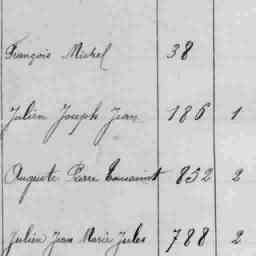 François Michel 38
Julien Joseph Jean 186 1
Auguste Pierre Toussaint 832 2
Julien Jean Marie Jules 788 2